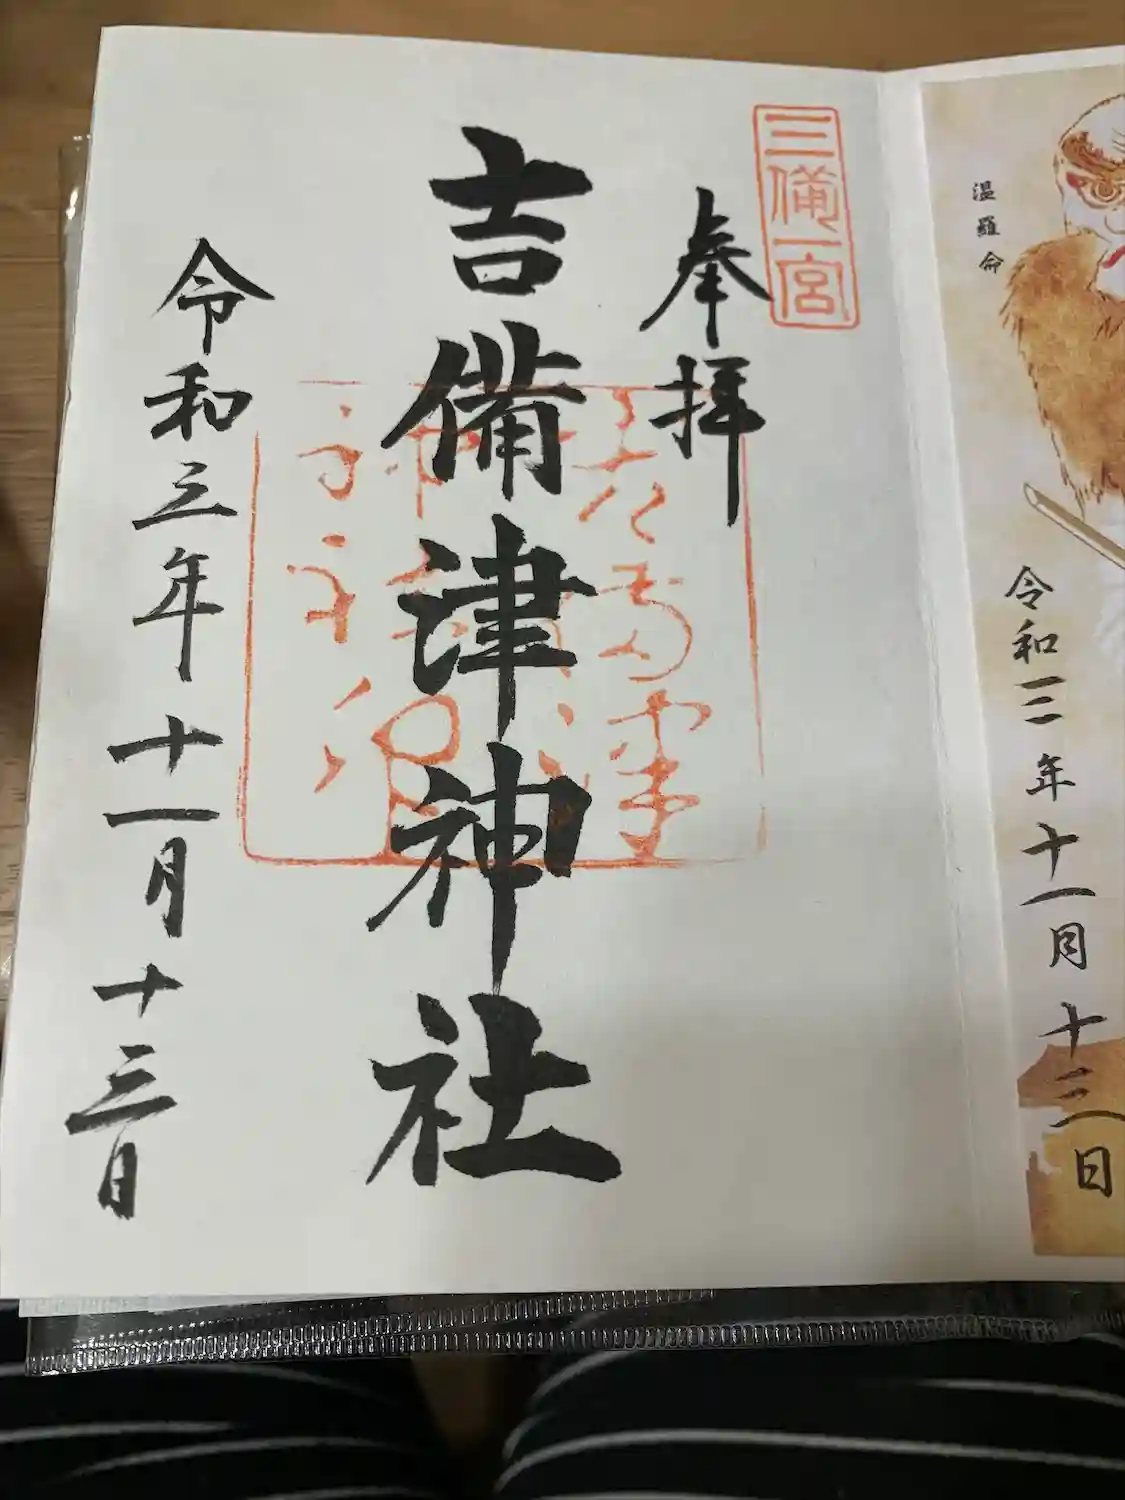 温羅命
令和三年十一月十三日
三備一宮
奉拝
吉備津神社
令和三年十一月十三日